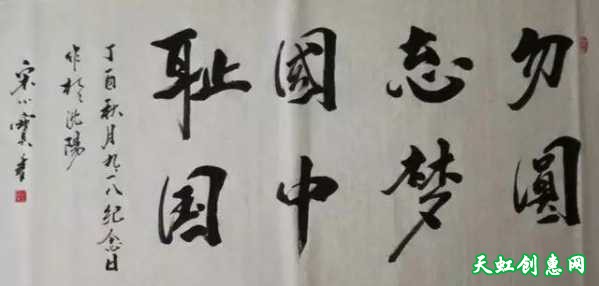 勿忘國耻
圓梦中国
丁酉秋月九一八纪念日
作於沈陽
宋小寶书
天虹创惠网